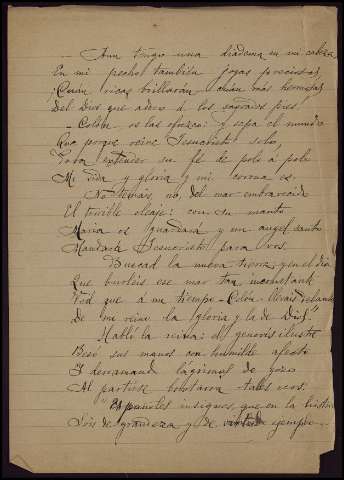 Aun tengo una diadema en mi cabeza
En mi pecho también joyas preciosas
¡Cuán ricas brillarán, cuán más hermosas
Del Dios que adoro á los sagrados pies!
— Colón, os las ofrezco: y sepa el mundo
Que porque reine Jesucristo solo,
Toda extender su fé de polo á polo
Mi vida y gloria y mi corona es.
No temais, no, del mar embravecido
El terrible oleaje: con su manto
Maria os guardará y un angel santo
Mandará Jesucristo para vos.
Buscad la nueva tierra, y en el dia
Que burléis ese mar tan inconstante
Ved que á un tiempo Colón llevais delante
De mi reino la gloria y la de Dios."
Habló la reina: el genovés ilustre
Besó sus manos con humilde afecto
Y derramand lágrimas de gozo
Al partirse brotaron tales voces.
"Españoles insignes, que en la historia
Sois de grandeza y de virtud ejemplo